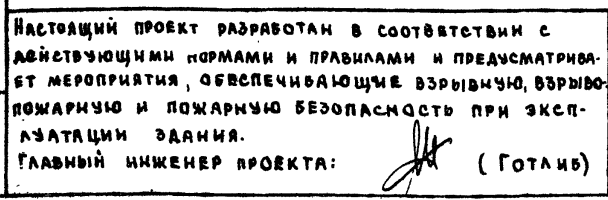 Настоящий проект разработан в соответствии с
действующими нормами и правилами и предусматрива-
ет мероприятия, обеспечивающие взрывную, взрыво-
пожарную и пожарную безопасность при эксп-
луатации здания.
Главный инженер проекта: (Готлиб)